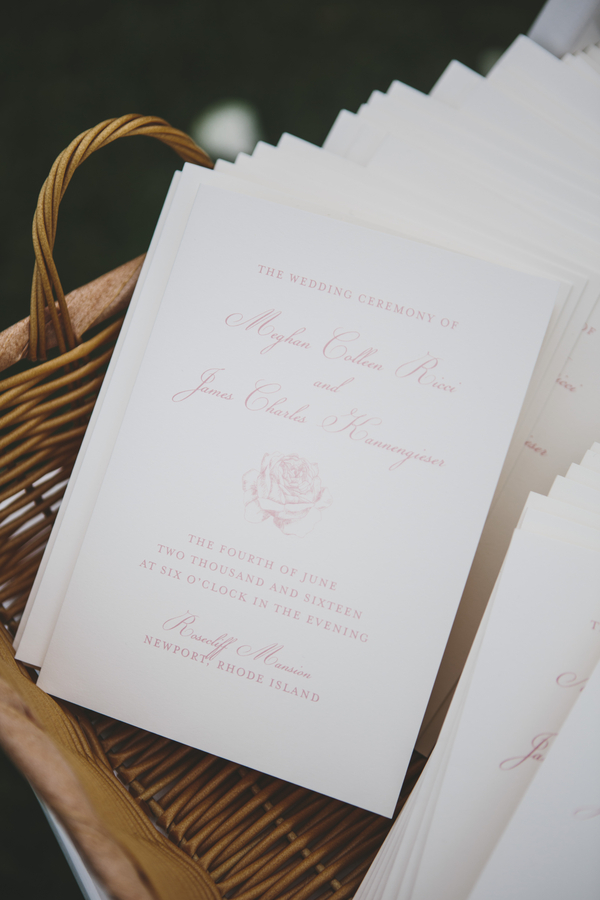 THE WEDDING CEREMONY OF
Meghan Colleen Ricci
and
James Charles Kannengieser
THE FOURTH OF JUNE
TWO THOUSAND AND SIXTEEN
AT SIX O'CLOCK IN THE EVENING
Rosecliff Mansion
NEWPORT, RHODE ISLAND